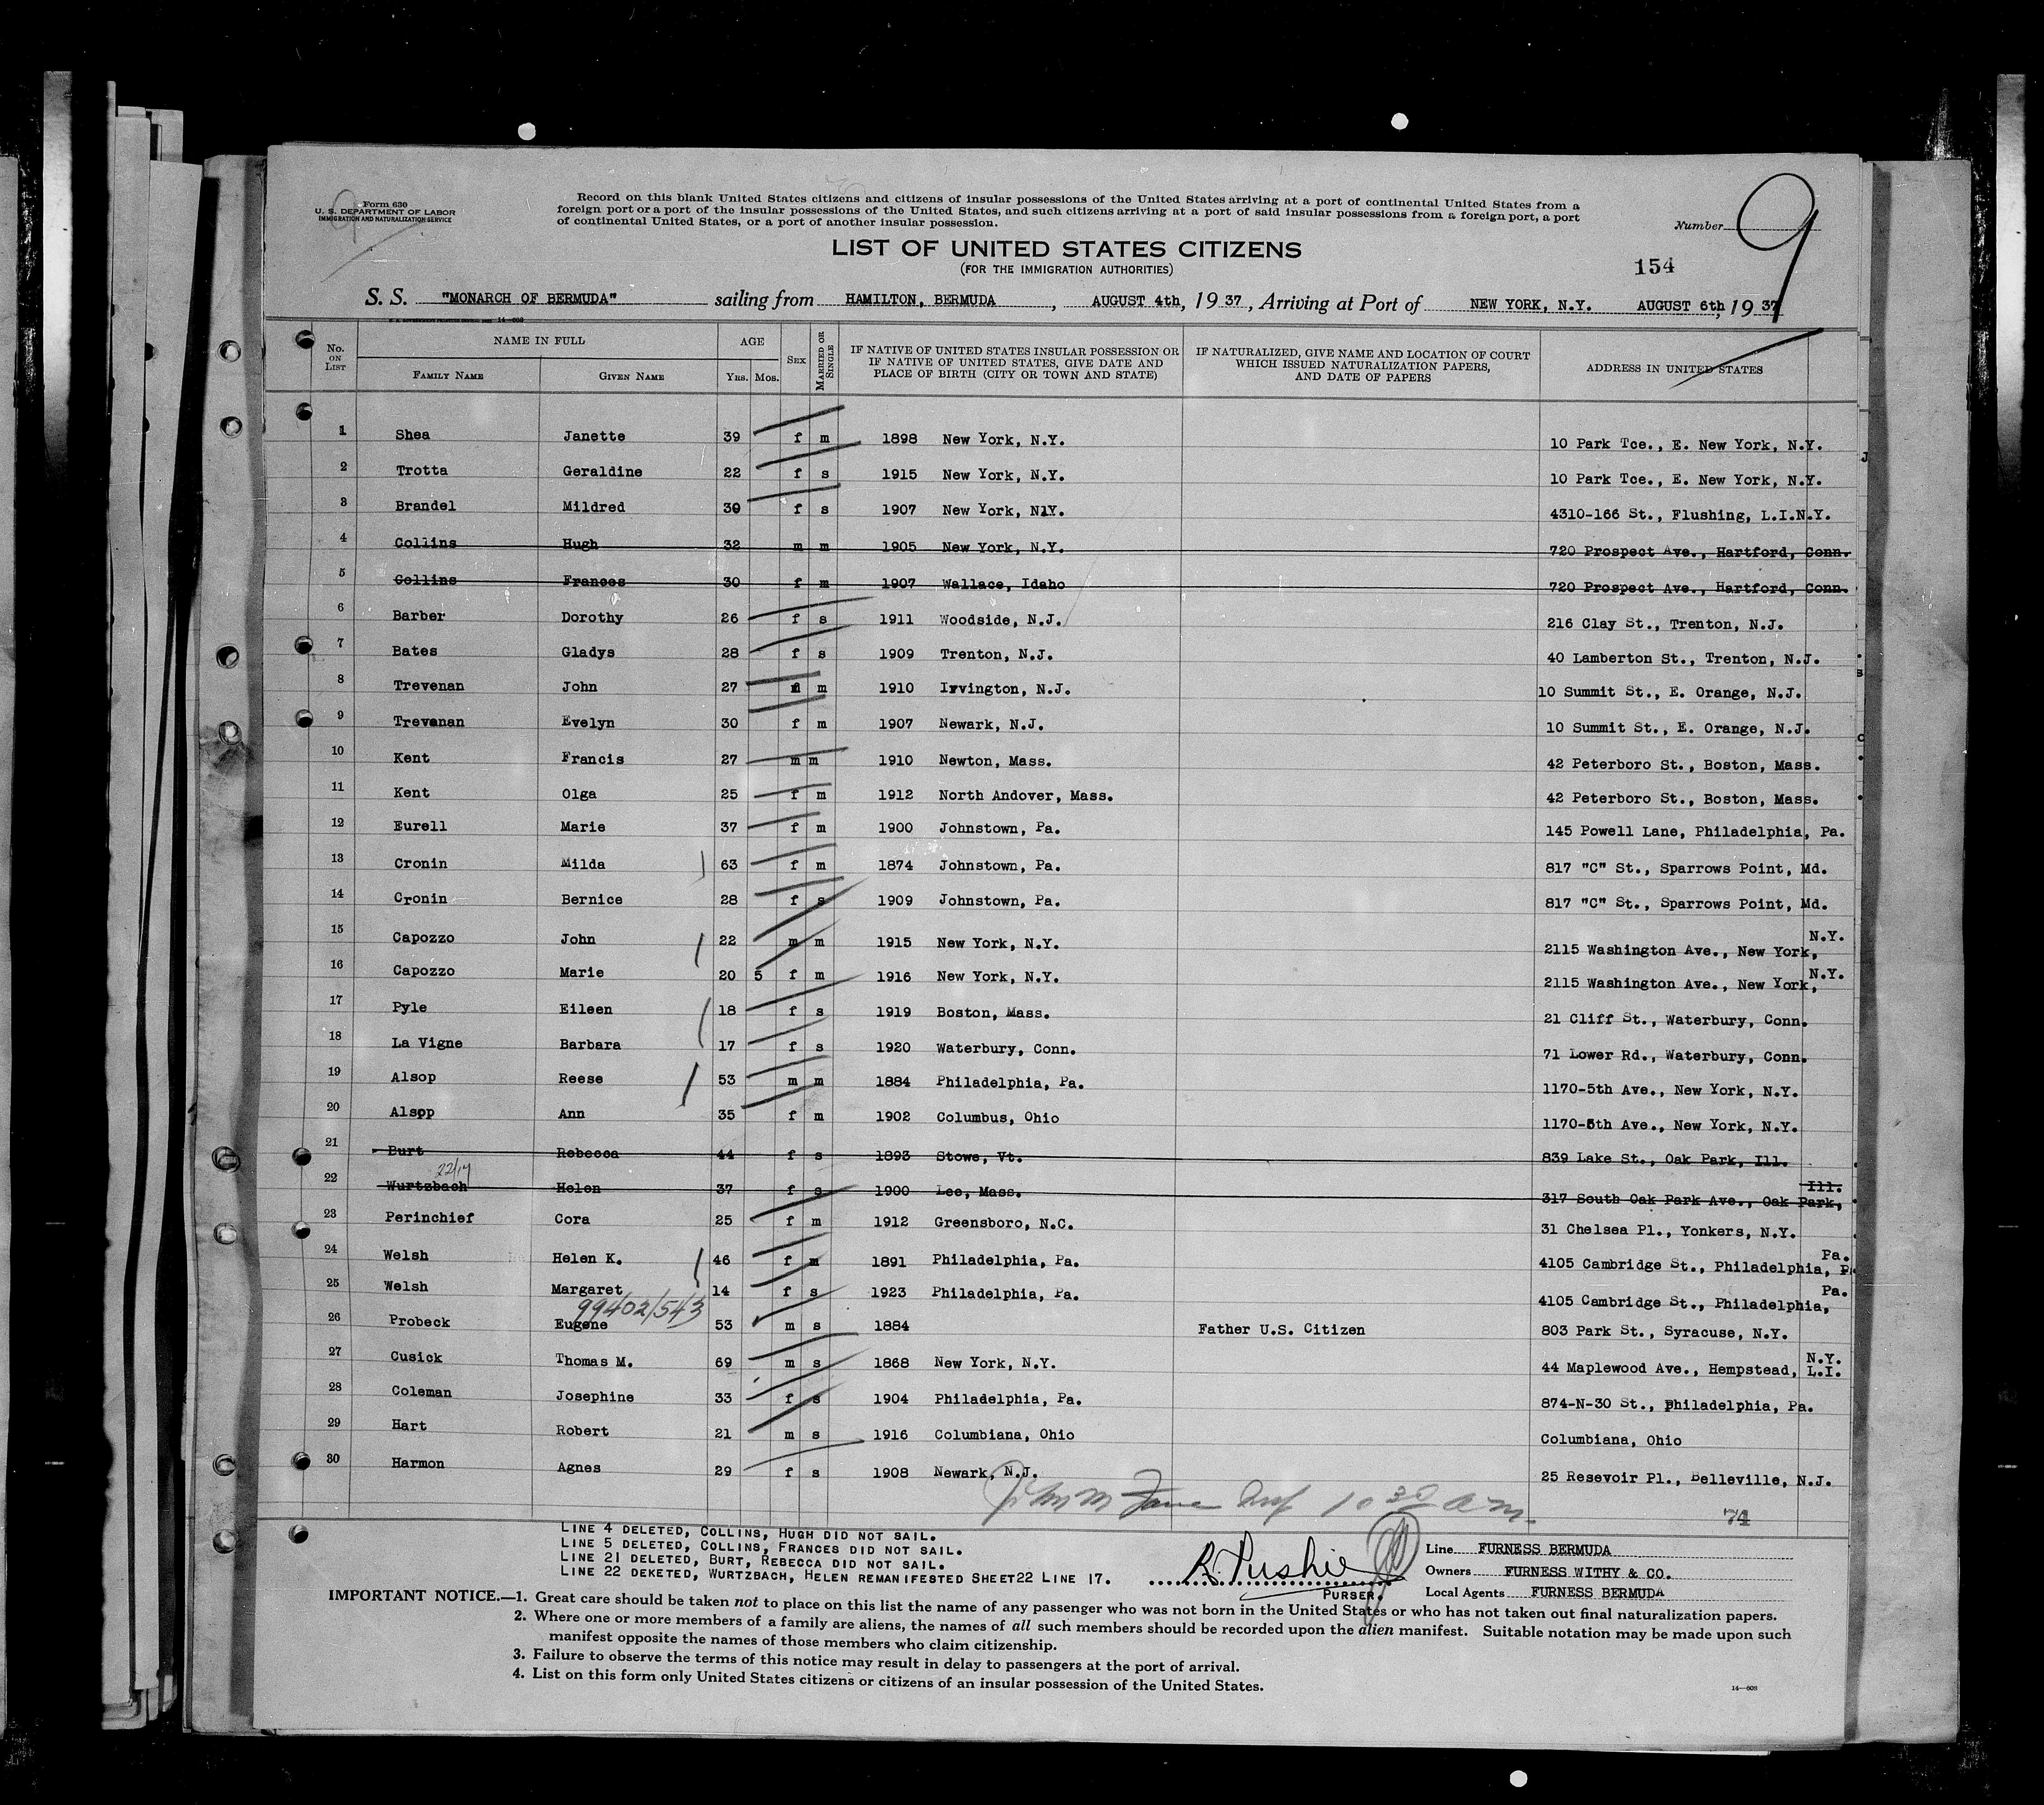 Form 630
U. S. DEPARTMENT OF LABOR
IMMIGRATION AND NATURALIZATION SERVICE
9
Record on this blank United States citizens and citizens of insular possessions of the United States arriving at a port of continental United States from a
foreign port or a port of the insular possessions of the United States, and such citizens arriving at a port of said insular possessions from a foreign port, a port
of continental United States, or a port of another insular possession.
Number 9
LIST OF UNITED STATES CITIZENS
(FOR THE IMMIGRATION AUTHORITIES)
154
S. S. "MONARCH OF BERMUDA" sailing from HAMILTON, BERMUDA, AUGUST 4th, 1937, Arriving at Port of NEW YORK, N.Y. AUGUST 6th, 1937
14—608
No. ON LIST NAME IN FULL AGE SEX MARRIED OR SINGLE IF NATIVE OF UNITED STATES INSULAR POSSESSION OR IF NATIVE OF UNITED STATES, GIVE DATE AND PLACE OF BIRTH (CITY OR TOWN AND STATE) IF NATURALIZED, GIVE NAME AND LOCATION OF COURT WHICH ISSUED NATURALIZATION PAPERS, AND DATE OF PAPERS ADDRESS IN UNITED STATES
FAMILY NAME GIVEN NAME YRS. MOS.
1 Shea Janette 39 f m 1898 New York, N.Y. 10 Park Tce., E. New York, N.Y.
2 Trotta Geraldine 22 f s 1915 New York, N.Y. 10 Park Tce., E. New York, N.Y.
3 Brandel Mildred 30 f s 1907 New York, N.Y. 4310-166 St., Flushing, L.I.N.Y.
4 Collins Hugh 32 m m 1905 New York, N.Y. 720 Prospect Ave., Hartford, Conn.
5 Collins Frances 30 f m 1907 Wallace, Idaho 720 Prospect Ave., Hartford, Conn.
6 Barber Dorothy 26 f s 1911 Woodside, N.J. 216 Clay St., Trenton, N.J.
7 Bates Gladys 28 f s 1909 Trenton, N.J. 40 Lamberton St., Trenton, N.J.
8 Trevenan John 27 m m 1910 Irvington, N.J. 10 Summit St., E. Orange, N.J.
9 Trevenan Evelyn 30 f m 1907 Newark, N.J. 10 Summit St., E. Orange, N.J.
10 Kent Francis 27 m m 1910 Newton, Mass. 42 Peterboro St., Boston, Mass.
11 Kent Olga 25 f m 1912 North Andover, Mass. 42 Peterboro St., Boston, Mass.
12 Eurell Marie 37 f m 1900 Johnstown, Pa. 145 Powell Lane, Philadelphia, Pa.
13 Cronin Milda 63 f m 1874 Johnstown, Pa. 817 "C" St., Sparrows Point, Md.
14 Cronin Bernice 28 f s 1909 Johnstown, Pa. 817 "C" St., Sparrows Point, Md.
15 Capozzo John 22 m m 1915 New York, N.Y. 2115 Washington Ave., New York, N.Y.
16 Capozzo Marie 20 5 f m 1916 New York, N.Y. 2115 Washington Ave., New York, N.Y.
17 Pyle Eileen 18 f s 1919 Boston, Mass. 21 Cliff St., Waterbury, Conn.
18 La Vigne Barbara 17 f s 1920 Waterbury, Conn. 71 Lower Rd., Waterbury, Conn.
19 Alsop Reese 53 m m 1884 Philadelphia, Pa. 1170-5th Ave., New York, N.Y.
20 Alsop Ann 35 f m 1902 Columbus, Ohio 1170-5th Ave., New York, N.Y.
21 Burt Rebecca 44 f s 1893 Stowe, Vt. 839 Lake St., Oak Park, Ill.
22/17
22 Wurtzbach Helen 37 f s 1900 Lee, Mass. 317 South Oak Park Ave., Oak Park, Ill.
23 Perinchief Cora 25 f m 1912 Greensboro, N.C. 31 Chelsea Pl., Yonkers, N.Y.
24 Welsh Helen K. 46 f m 1891 Philadelphia, Pa. 4105 Cambridge St., Philadelphia, Pa.
25 Welsh Margaret 14 f s 1923 Philadelphia, Pa. 4105 Cambridge St., Philadelphia, Pa.
99402/543
26 Probeck Eugene 53 m s 1884 Father U.S. Citizen 803 Park St., Syracuse, N.Y.
27 Cusick Thomas M. 69 m s 1868 New York, N.Y. 44 Maplewood Ave., Hempstead, N.Y. L.I.
28 Coleman Josephine 33 f s 1904 Philadelphia, Pa. 874-N-30 St., Philadelphia, Pa.
29 Hart Robert 21 m s 1916 Columbiana, Ohio Columbiana, Ohio
30 Harmon Agnes 29 f s 1908 Newark, N.J. 25 Resevoir Pl., Belleville, N.J.
10 30 am
74
LINE 4 DELETED, COLLINS, HUGH DID NOT SAIL.
LINE 5 DELETED, COLLINS, FRANCES DID NOT SAIL.
LINE 21 DELETED, BURT, REBECCA DID NOT SAIL.
LINE 22 DEKETED, WURTZBACH, HELEN REMANIFESTED SHEET22 LINE 17.
PURSER.
Line FURNESS BERMUDA
Owners FURNESS WITHY & CO.
Local Agents FURNESS BERMUDA
IMPORTANT NOTICE.—1. Great care should be taken not to place on this list the name of any passenger who was not born in the United States or who has not taken out final naturalization papers.
2. Where one or more members of a family are aliens, the names of all such members should be recorded upon the alien manifest. Suitable notation may be made upon such
manifest opposite the names of those members who claim citizenship.
3. Failure to observe the terms of this notice may result in delay to passengers at the port of arrival.
4. List on this form only United States citizens or citizens of an insular possession of the United States.
14—608